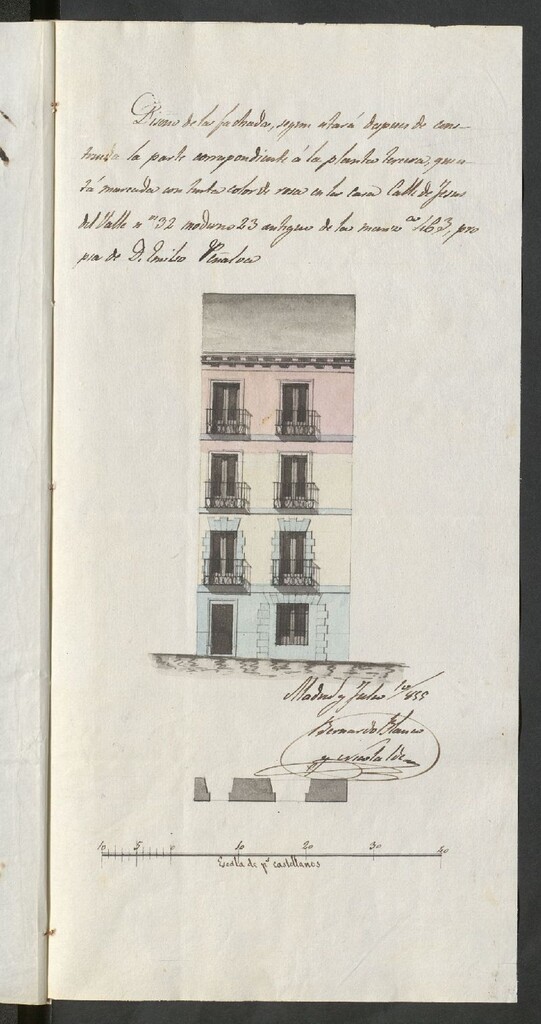 Diseño de la fachada, segun estará despues de cons-
truida la parte correspondiente á la planta tercera, que es-
tá marcada con tinta color de rosa en la casa Calle de Jesus
del Valle nº 32 moderno 23 antiguo de la manzª 463, pro
pia de D. Emilio
Madrid y Julio 1855
Bernardo Blanco
y
10 5 0 10 20 30 40
Escala de ps castellanos